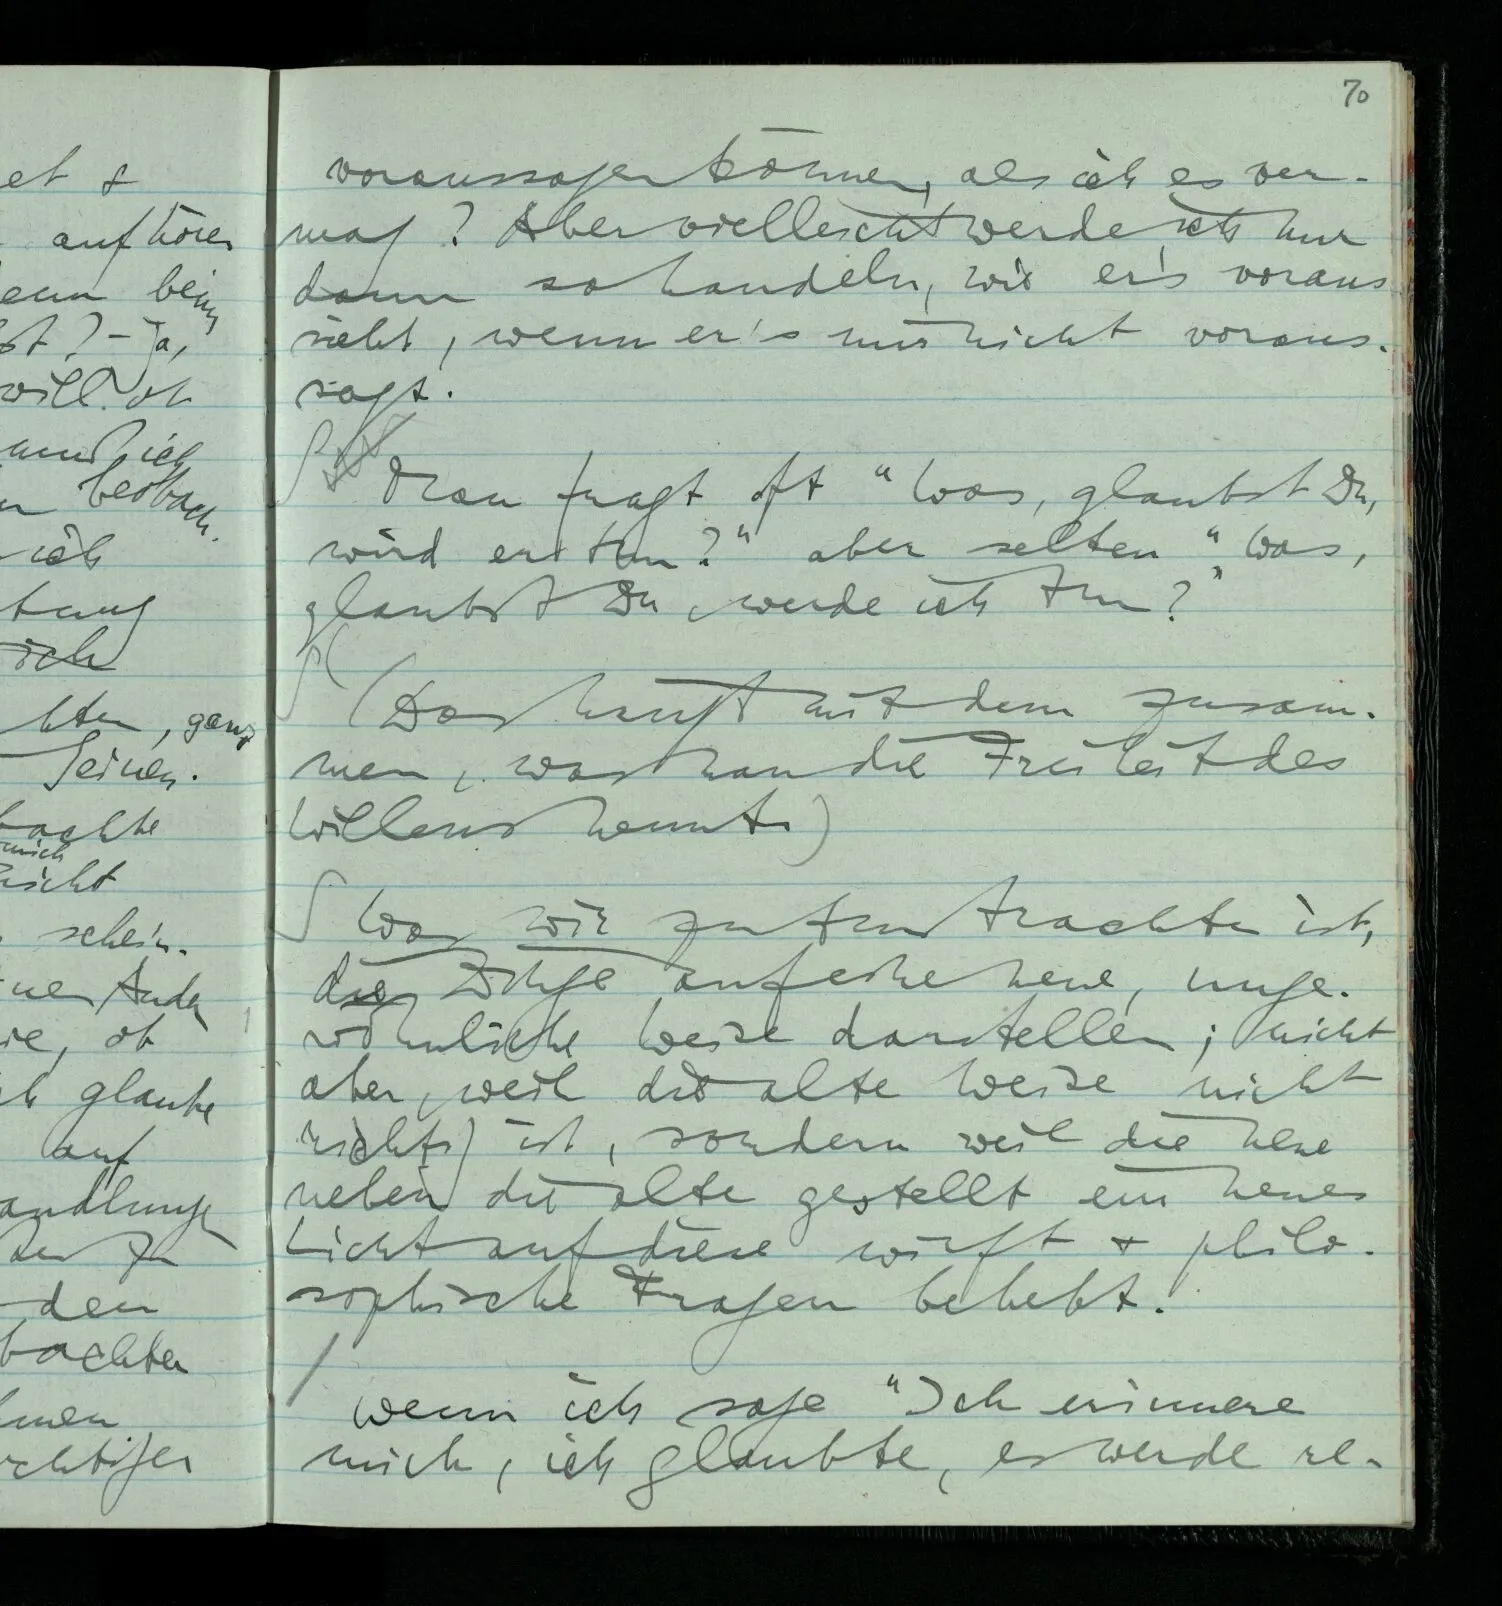 70
et &
aufhören
enn beim
st? – ja,
will. ob
und ich
n beobach-
ich
tung
ich
hten, ganz
seinen.
bachte
mich
nicht
schein-
ner Ander
ie, ob
ich glaube
auf
andlungen
den zu
den
bachten
hmen
richtiger
voraussagen können, als ich es ver-
mag? Aber vielleicht werde ich nur
dann so handeln, wie er's voraus
sieht, wenn er's mir nicht voraus-
sagt.
∫ Man fragt oft "Was, glaubst Du,
wird er tun?" aber selten "Was,
glaubst Du, werde ich tun?"
∫ (Das hängt mit dem zusam-
men, was man die Freiheit des
Willens nennt.)
∫ Was wir zu tun trachten ist,
die Dinge auf eine neue, unge-
wöhnliche Weise darstellen; nicht
aber, weil die alte Weise nicht
richtig ist, sondern weil die neue
neben die alte gestellt ein neues
Licht auf diese wirft & philo-
sophische Fragen behebt.
/ Wenn ich sage "Ich erinnere
mich, ich glaubte, es werde re-